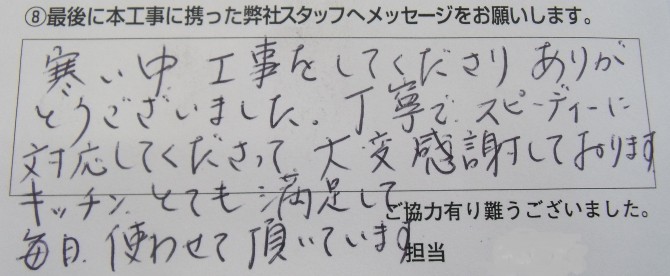 ⑧最後に本工事に携った弊社スタッフへメッセージをお願いします。
寒い中 工事をしてくださり ありが
とうございました。丁寧で スピーディーに
対応してくださって 大変感謝しております
キッチン とても満足して
ご協力有り難うございました。
毎日 使わせて頂いています
担当